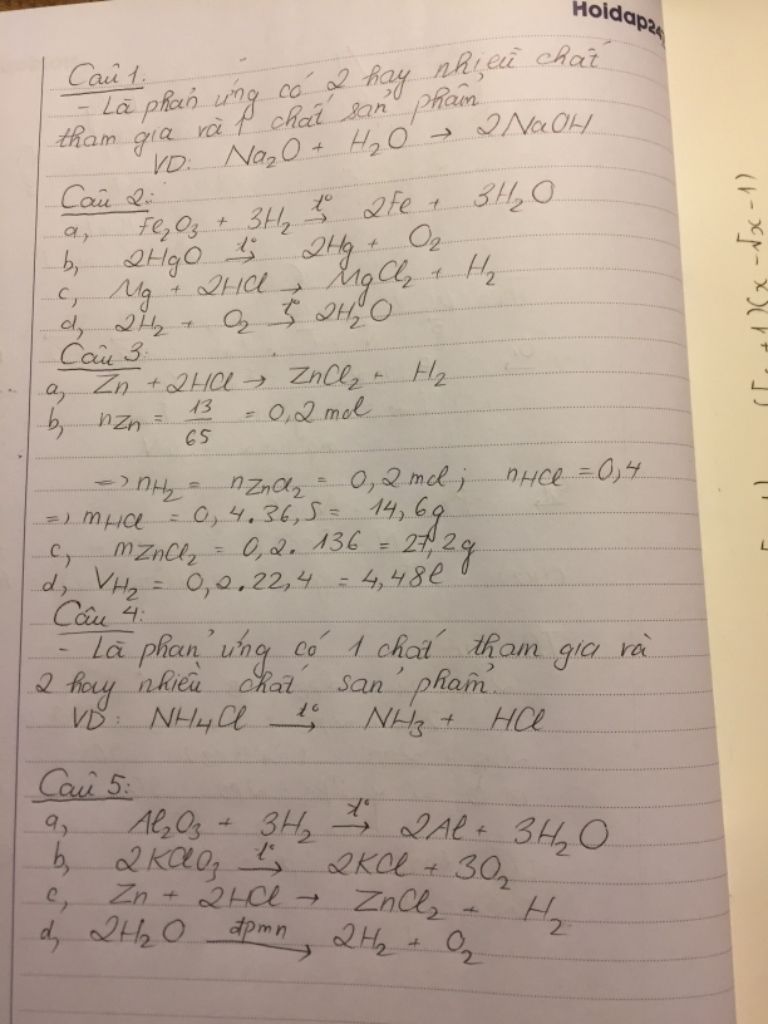 Hoidap24
Câu 1:
- Là phản ứng có 2 hay nhiều chất
tham gia và 1 chất sản phẩm
VD: Na₂O + H₂O → 2NaOH
Câu 2:
a, Fe₂O₃ + 3H₂ –t°→ 2Fe + 3H₂O
b, 2HgO –t°→ 2Hg + O₂
c, Mg + 2HCl → MgCl₂ + H₂
d, 2H₂ + O₂ –t°→ 2H₂O
Câu 3:
a, Zn + 2HCl → ZnCl₂ + H₂
b, nZn = 13/65 = 0,2 mol
=> nH₂ = nZnCl₂ = 0,2 mol; nHCl = 0,4
=> mHCl = 0,4.36,5 = 14,6g
c, mZnCl₂ = 0,2.136 = 27,2g
d, VH₂ = 0,2.22,4 = 4,48l
Câu 4:
- Là phản ứng có 1 chất tham gia và
2 hay nhiều chất sản phẩm.
VD: NH₄Cl –t°→ NH₃ + HCl
Câu 5:
a, Al₂O₃ + 3H₂ –t°→ 2Al + 3H₂O
b, 2KClO₃ –t°→ 2KCl + 3O₂
c, Zn + 2HCl → ZnCl₂ + H₂
d, 2H₂O –đpmn→ 2H₂ + O₂